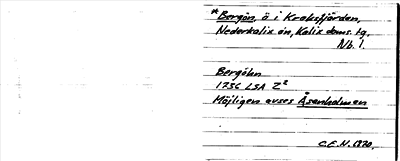 *Bergön, ö i Kraksfjärden,
Nederkalix sn, Kalix doms. tg,
Nb. l.
Bergöhn
1756 LSA Z²
Möjligen avses Åsenholmen
C.E.N. 1970.